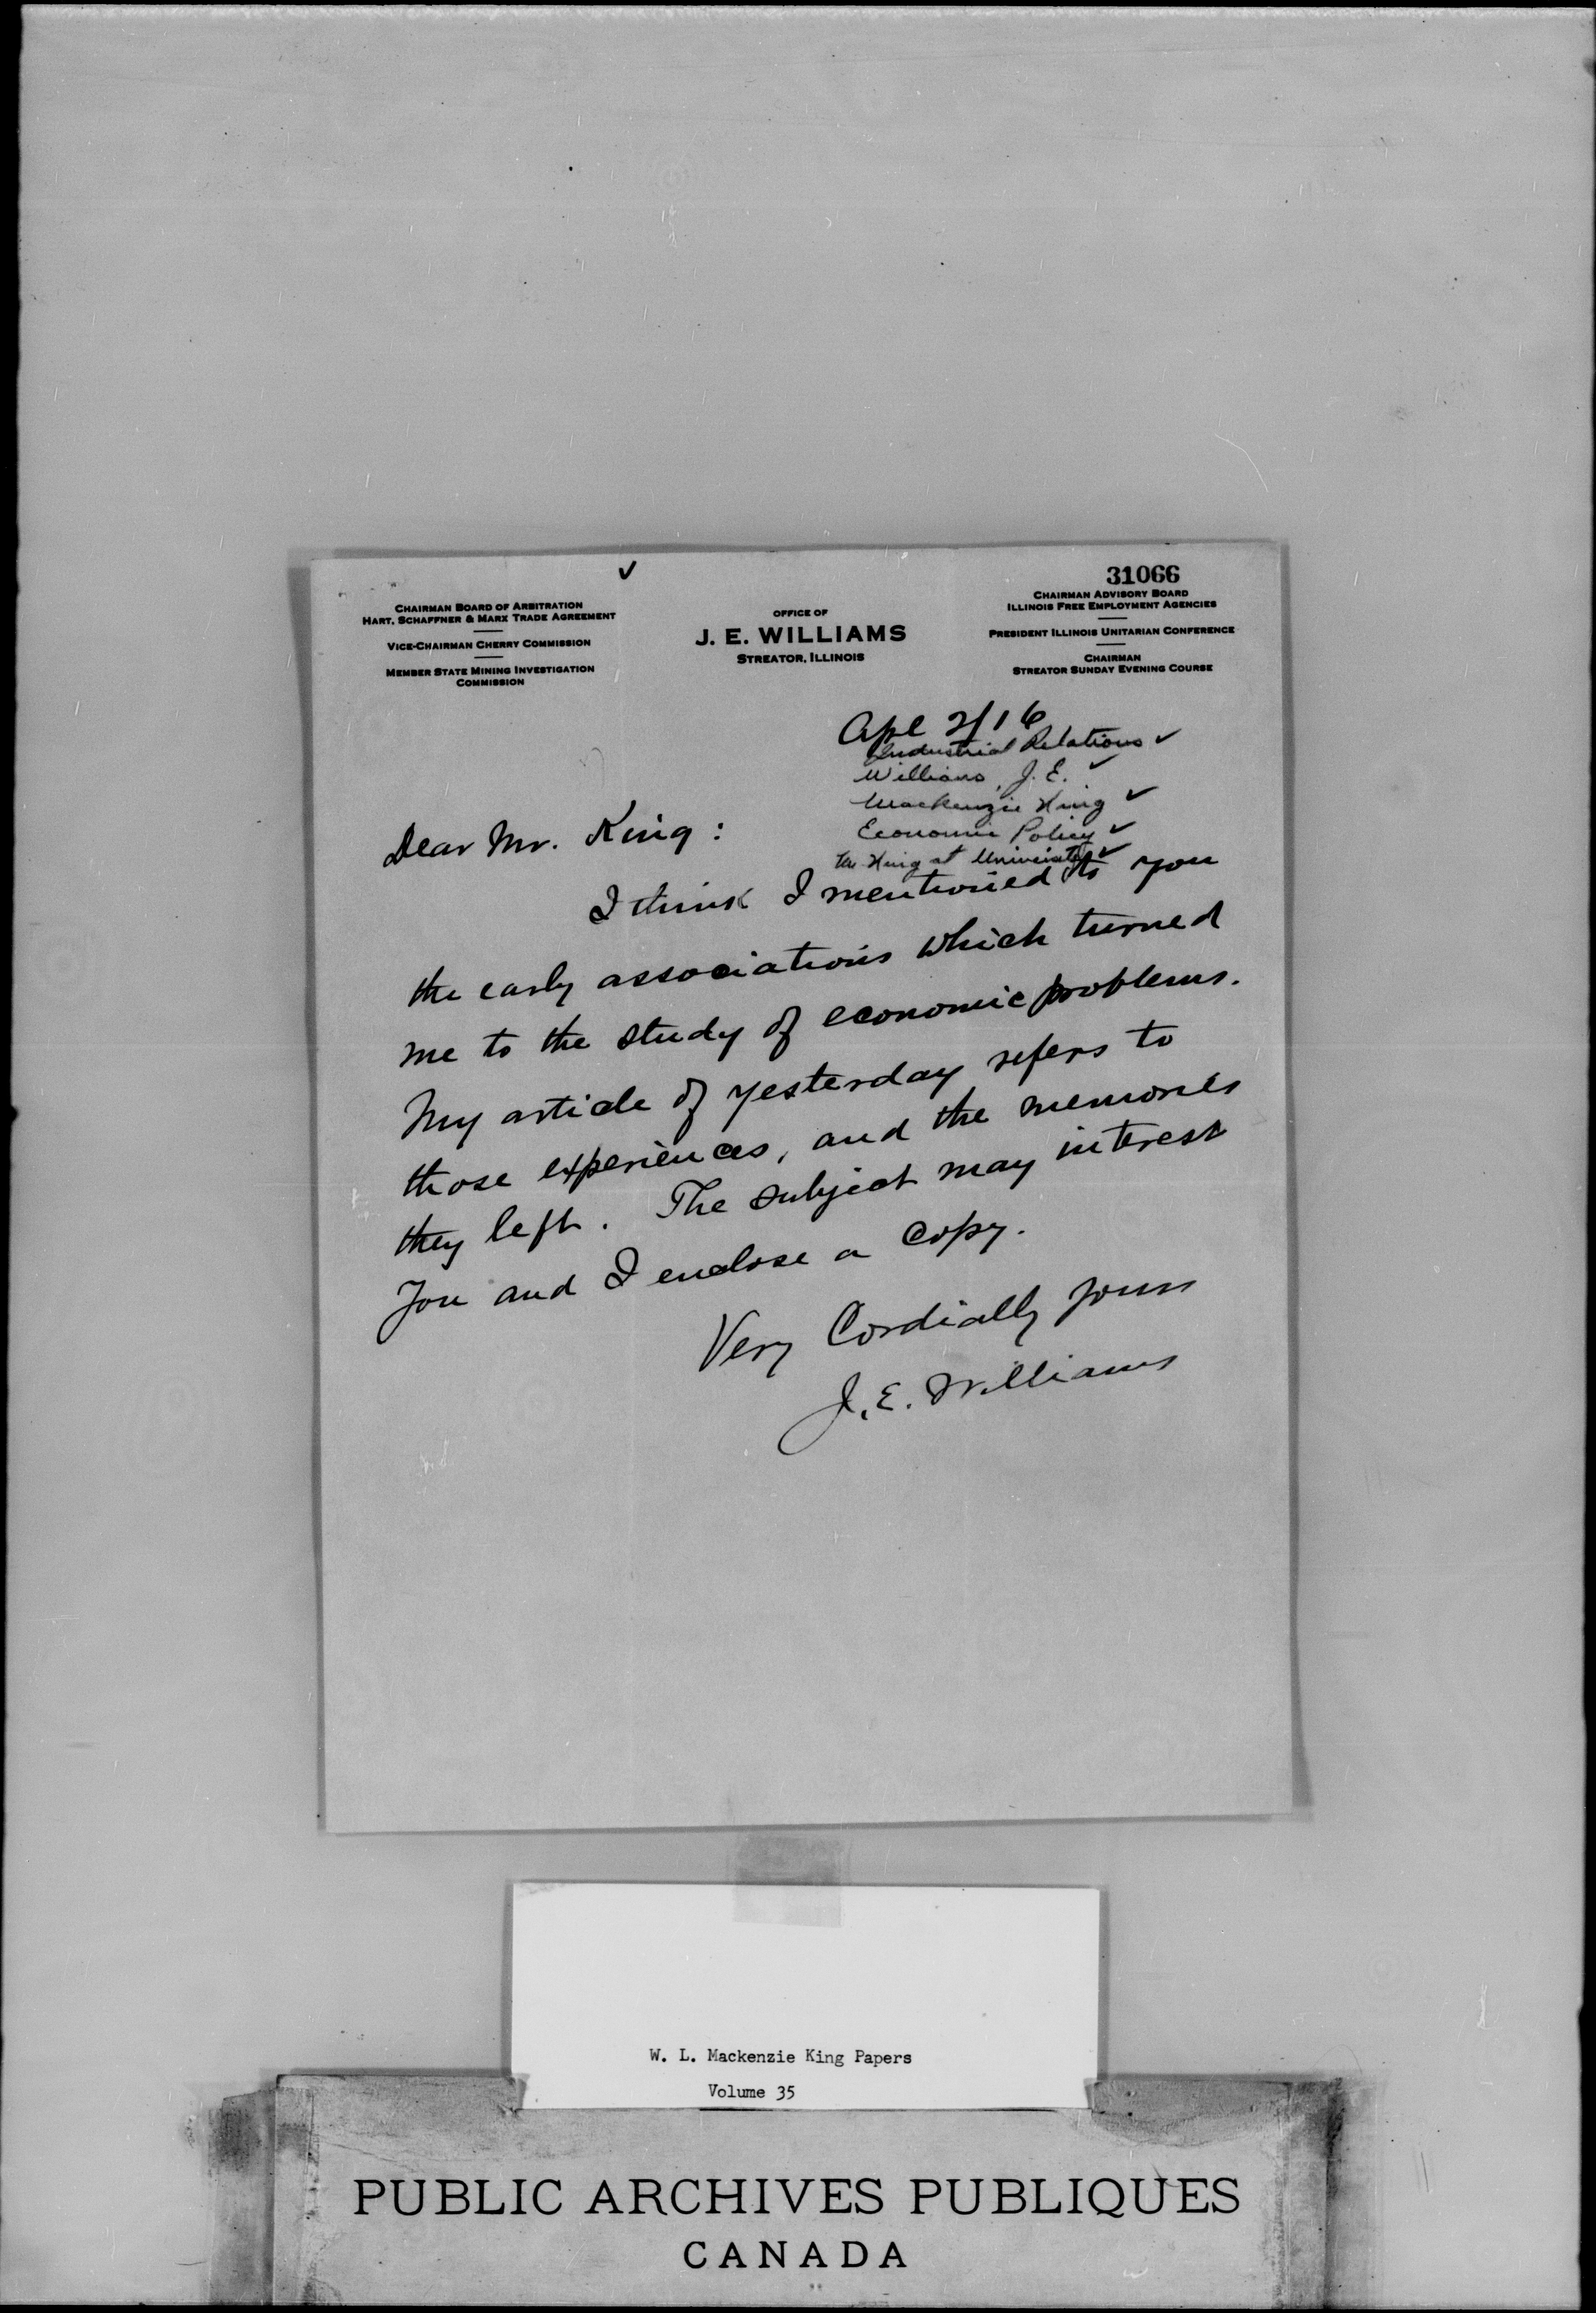 ✓
31066
CHAIRMAN BOARD OF ARBITRATION
HART, SCHAFFNER & MARX TRADE AGREEMENT
VICE-CHAIRMAN CHERRY COMMISSION
MEMBER STATE MINING INVESTIGATION
COMMISSION
OFFICE OF
J. E. WILLIAMS
STREATOR, ILLINOIS
CHAIRMAN ADVISORY BOARD
ILLINOIS FREE EMPLOYMENT AGENCIES
PRESIDENT ILLINOIS UNITARIAN CONFERENCE
CHAIRMAN
STREATOR SUNDAY EVENING COURSE
Apl 2/16
Industrial Relations ✓
Williams, J. E. ✓
Mackenzie King ✓
Economic Policy ✓
King at University ✓
Dear Mr. King:
I think I mentioned to you
the early associations which turned
me to the study of economic problems.
My article of yesterday refers to
those experiences, and the memories
they left. The subject may interest
you and I enclose a copy.
Very Cordially yours
J. E. Williams
W. L. Mackenzie King Papers
Volume 35
PUBLIC ARCHIVES PUBLIQUES
CANADA